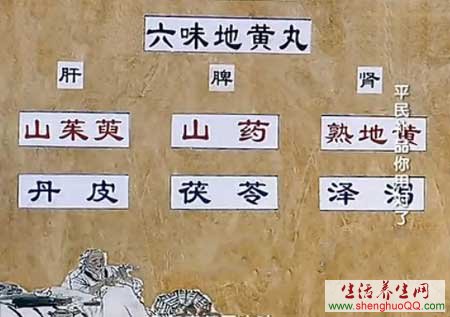 六味地黄丸
肝 脾 肾
山茱萸 山药 熟地黄
丹皮 茯苓 泽泻
平民补品你用对了
生活养生网
www.shenghuoQQ.com